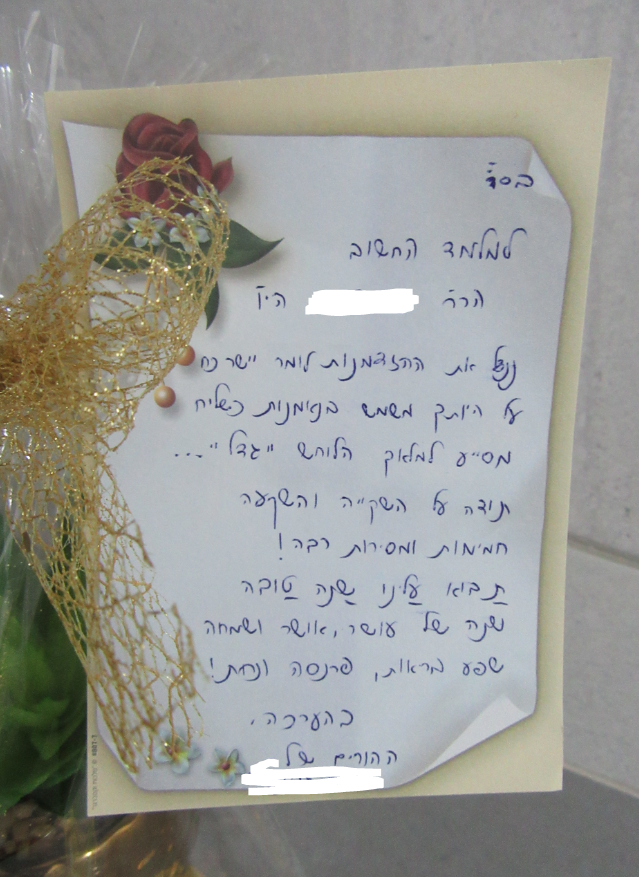 בס״ד
למלמד החשוב
הרר היו
ננצל את ההזדמנות לומר יישר כח
על היותך משמש בנאמנות כשליח
מסייע למלאך הלוחש ״גדל״...
תודה על השקייה והשקעה
חמימות ומסירות רבה!
תבוא עלינו שנה טובה
שנה של עושר, אושר ושמחה
שפע בריאות, פרנסה ונחת!
בהערכה,
ההורים של